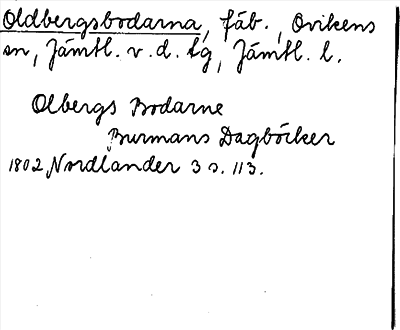 Oldbergsbodarna, fäb., Ovikens
sn, Jämtl. v. d. tg, Jämtl. l.
Olbergs Bodarne
Burmans Dagböcker
1802, Nordlander 3 s. 113.